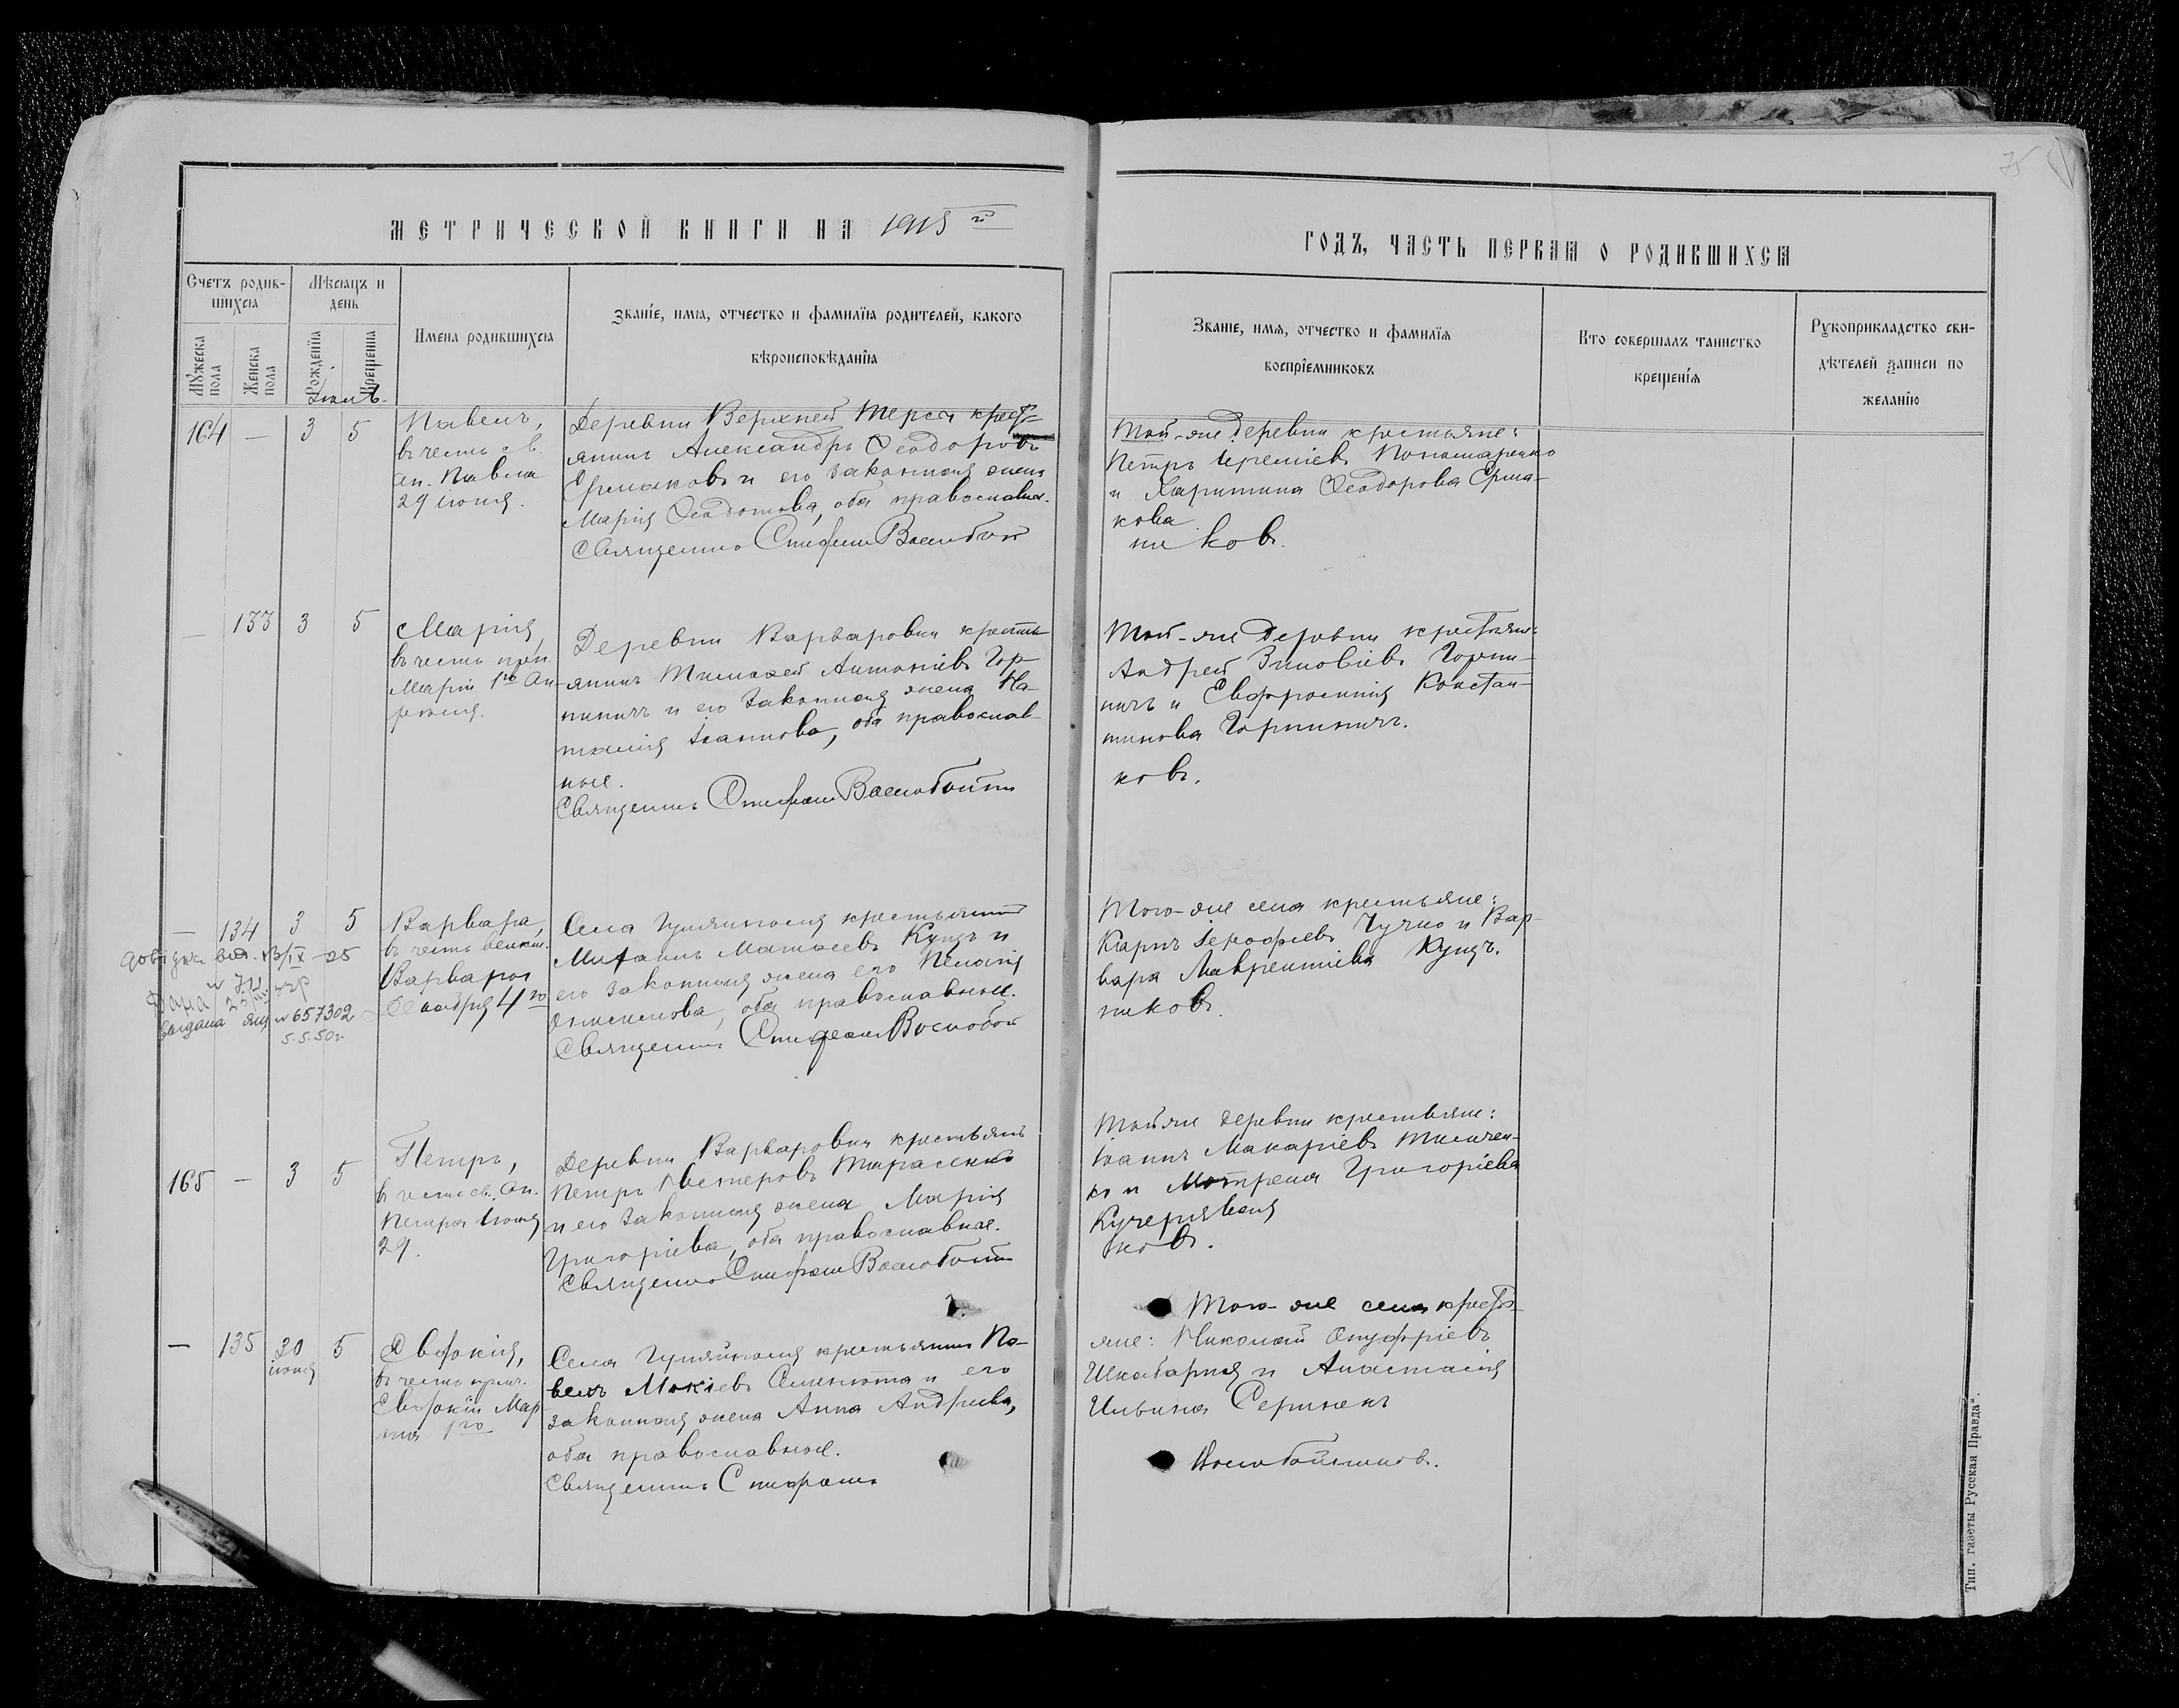 75
МЕТРИЧЕСКОЙ КНИГИ НА 1915 й
ГОДЪ, ЧАСТЬ ПЕРВАЯ О РОДИВШИХСЯ
Счетъ родив-
шихся
Мѣсяцъ и
день
Мужеска
пола
Женска
пола
Рожденїя
Крещенїя
Имена родившихся
Званїе, имя, отчество и фамилїя родителей, какого
вѣроисповѣданїя
Званїе, имя, отчество и фамилїя
воспрїемниковъ
Кто совершалъ таинство
крещенїя
Рукоприкладство сви-
дѣтелей записи по
желанїю
Іюль.
164 — 3 5
Павелъ,
въ честь св.
ап. Павла
29 іюня.
Деревни Верхней Терсы кресть-
янинъ Александръ Ѳеодоровъ
Ермаковъ и его законная жена
Марія Ѳеодотова, оба православн.
Священникъ Стефанъ Воскобой
Той-же деревни крестьяне:
Петръ Іереміевъ Пономаренко
и Харитина Ѳеодорова Ерма-
кова.
никовъ.
— 133 3 5
Марія,
въ честь преп.
Маріи 1го Ап-
рѣля.
Деревни Варваровки кресть-
янинъ Тимоѳей Антоніевъ Гор-
пиничъ и его законная жена На-
талія Іоаннова, оба православ-
ные.
Священникъ Стефанъ Воскобойни
Той-же деревни крестьяне:
Андрей Зиновіевъ Горпи-
ничъ и Евфросинія Констан-
тинова Горпиничъ.
ковъ.
— 134 3 5
Варвара,
въ честь великм.
Варвары
Декабря 4го
довідка вид. 13/IX-25
выдана № 657302
5.5.50г.
Села Гуляйполя крестьянинъ
Михаилъ Матѳеевъ Куць и
его законная жена его Пелагія
Онисимова, оба православные.
Священникъ Стефанъ Воскобой
Того-же села крестьяне:
Карпъ Іероѳіевъ Чучко и Вар-
вара Лаврентіева Куць.
никовъ.
165 — 3 5
Петръ,
въ честь св. ап.
Петра Іюня
29.
Деревни Варваровки крестьянинъ
Петръ Несторовъ Тарасенко
и его законная жена Марія
Григоріева, оба православные.
Священникъ Стефанъ Воскобойни
Той же деревни крестьяне:
Іоаннъ Макаріевъ Тимчен-
ко и Мотрена Григоріева
Кучерявая
ковъ.
— 135 30 5
іюня
Евдокія,
въ честь прмч.
Евдокіи Мар-
та 1го
Села Гуляйполя крестьянинъ Па-
велъ Мокіевъ Семенюта и его
законная жена Анна Андреева,
оба православные.
Священникъ Стефанъ
Того-же села кресть-
яне: Николай Онуфріевъ
Шкабарня и Анастасія
Ильина Серикъ
Воскобойниковъ.
Тип. газеты „Русская Правда“.